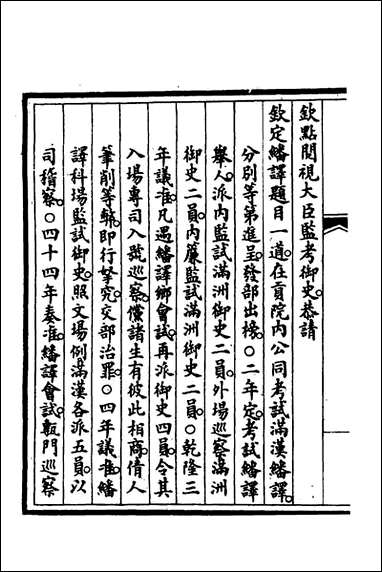 欽點閱視大臣監考御史恭請
欽定繙譯題目一道在貢院内公同考試滿漢繙譯
分別等第進呈發部出榜○二年定考試繙譯
舉人派内監試滿洲御史二員外場巡察滿洲
御史二員内簾監試滿洲御史二員○乾隆三
年議准凡遇繙譯鄉會試再派御史四員令其
入場專司入號巡察儻諸生有彼此相商倩人
筆削等弊即行拏究交部治罪○四年議准繙
譯科場監試御史照文場例滿漢各派五員以
司稽察○四十四年奏准繙譯會試甎門巡察